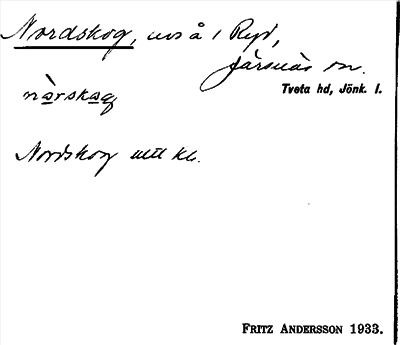 Nordskog, uos å i Ryd,
Järsnäs sn.
Tveta hd, Jönk. l.
nårskog
Nordskog utt kl.
FRITZ ANDERSSON 1933.